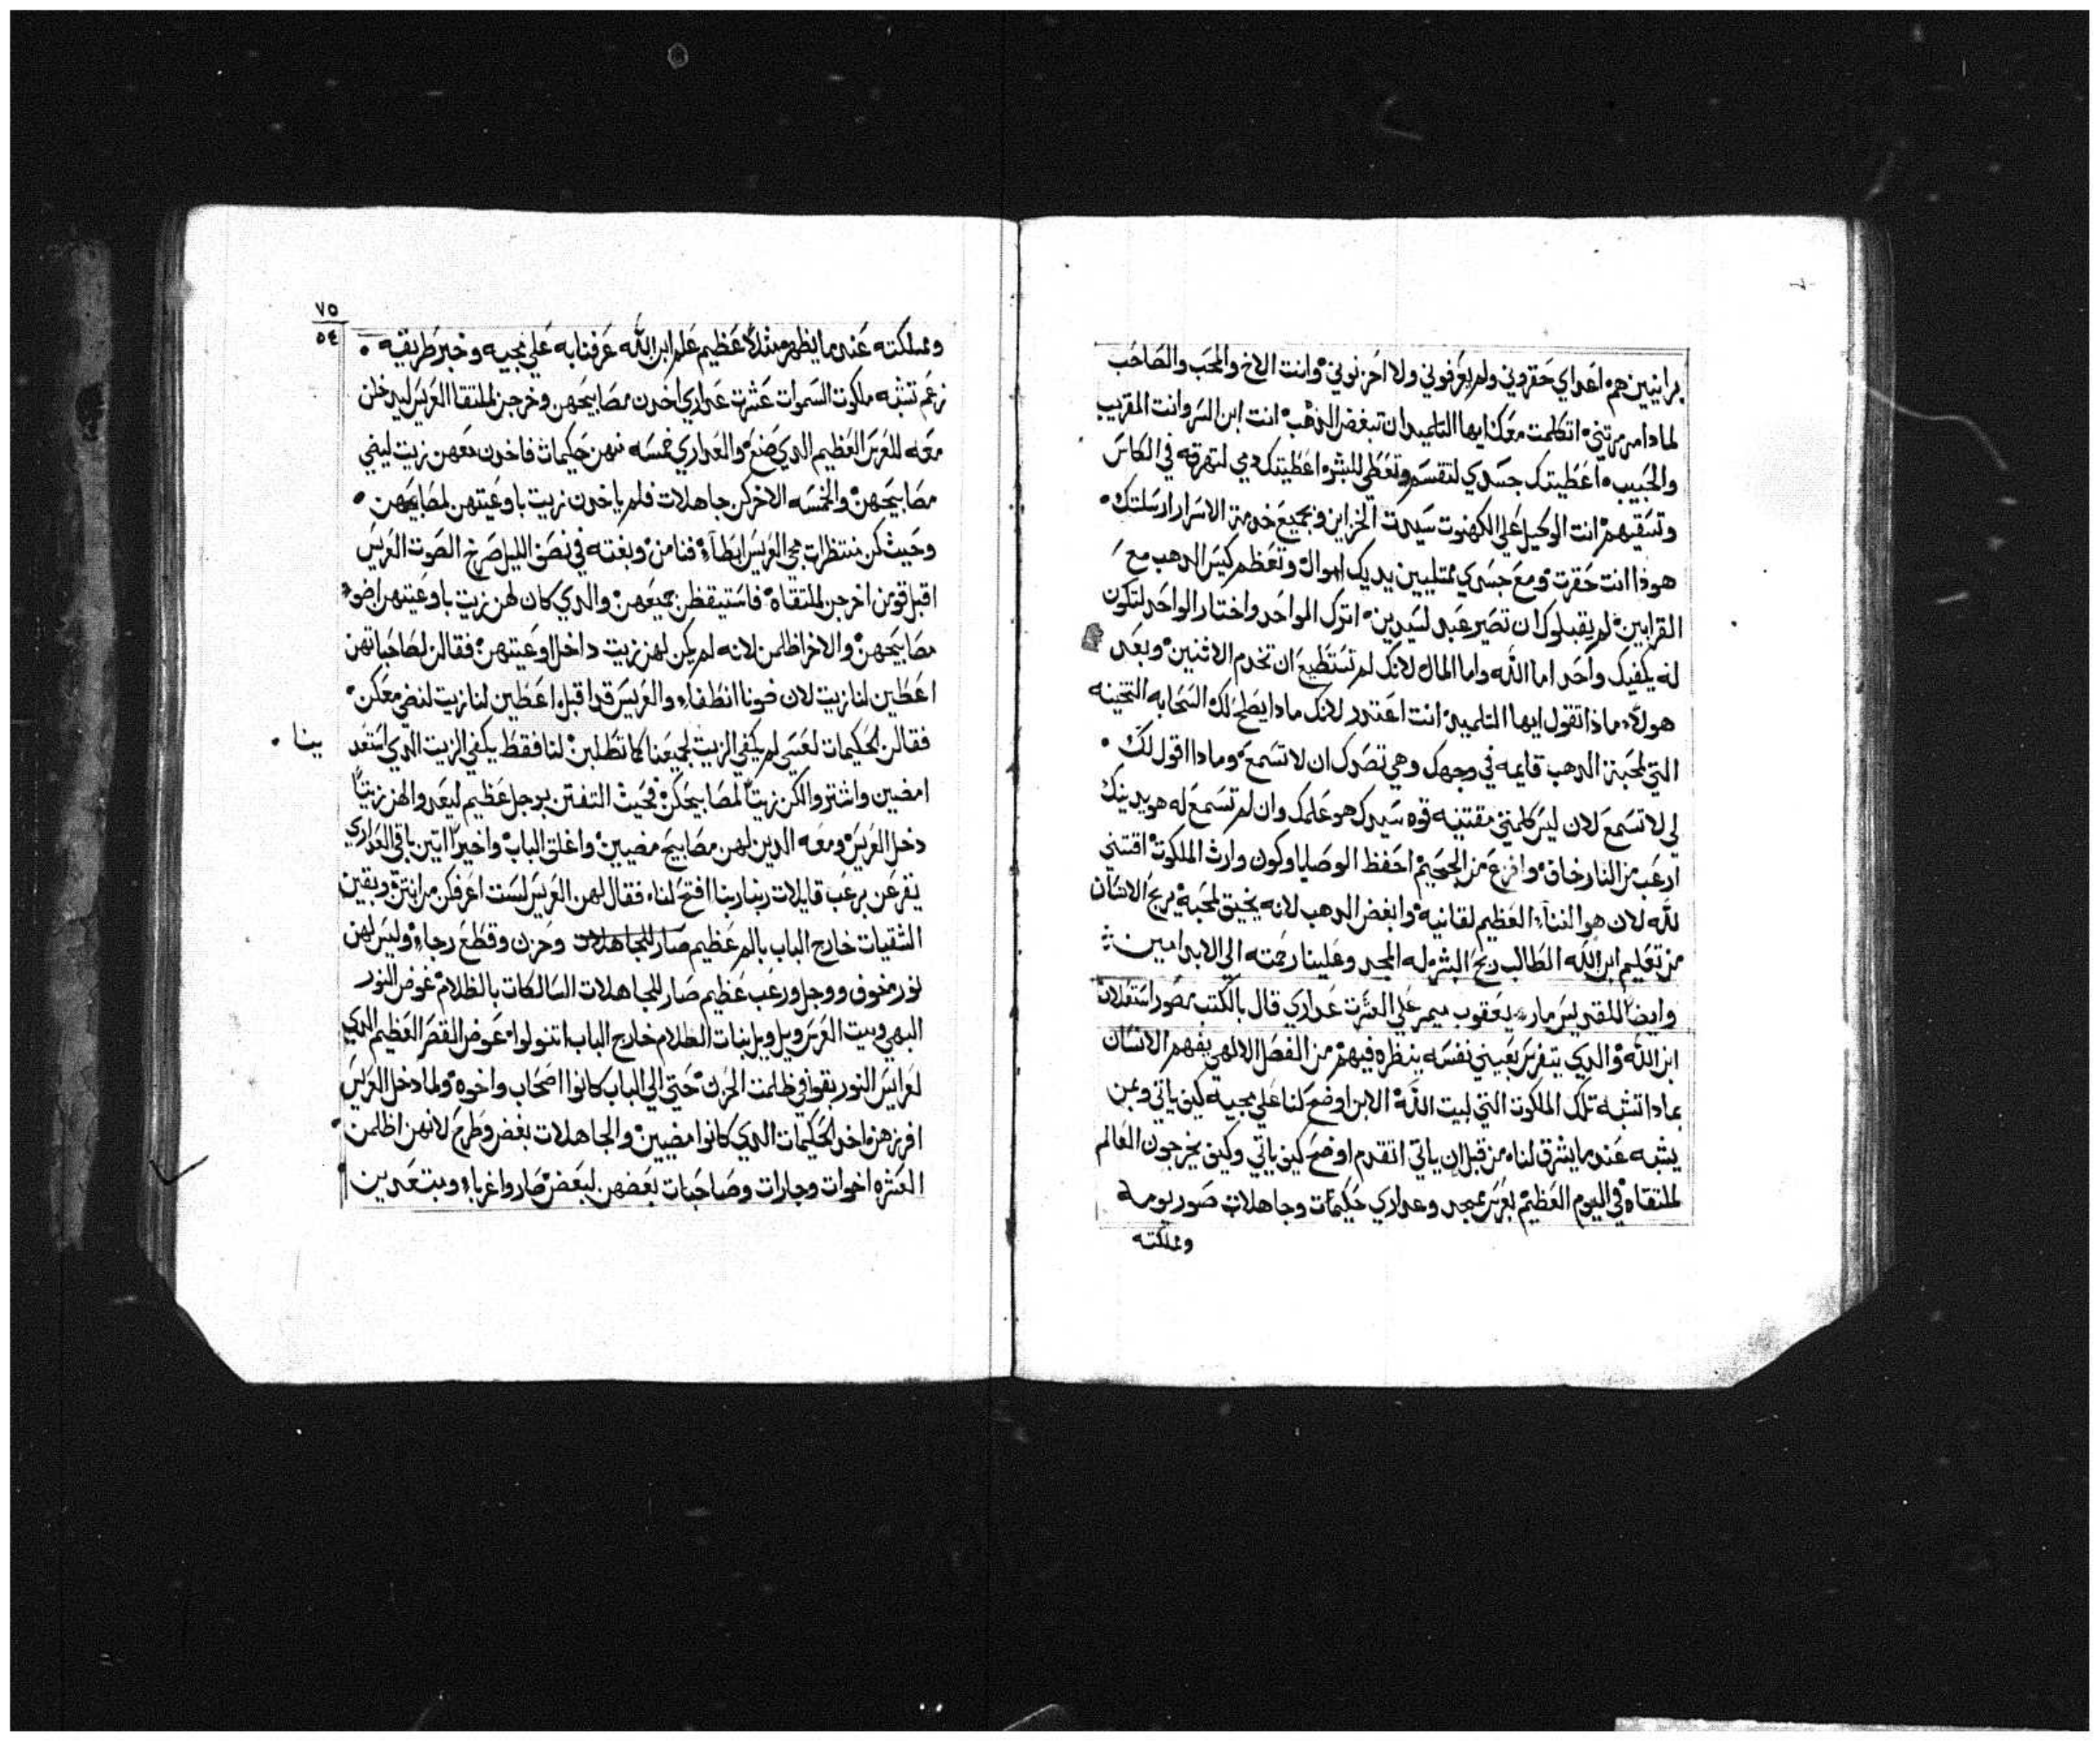 برانيين هم اعداي حقروني ولم يعرفوني ولا احزنوني وانت الاخ والمحب والصاحب
لمادا مرمرتني اتكلمت معك ايها التلميد ان تبغض الدهب انت ابن السر وانت المقريب
والحبيب اعطيتك جسدي لتقسم وتعطي للبشر اعطيتك دمي لتهرقه في الكاس
وتسقيهم انت الوكيل علي الكهنوت سيدت الخزاين وبجميع خدمة الاسرار ارسلتك
هوذا انت حقرت ومع جسدي ممتليين يديك اموال وتعظم كيس الدهب مع
القرابين لم يقبلوك ان تصير عبد لسيدين اترك الواحد واختار الواحد لتكون
له يكفيك واحد اما الله واما المال لانك لم تستطيع ان تخدم الاتنين وبعد
هولاء ماذا تقول ايها التلميد انت اعتدر لانك مادا يصلح لك السحابه التخينه
التي لمحبة الدهب قايمه في وجهك وهي تصدك ان لا تسمع ومادا اقول لك
لي لا تسمع لان ليس كلمتي مقتنيه قوه سيدك هو علمك وان لم تسمع له هو يدينك
ارعب من النار خاف وافزع من الجحيم احفظ الوصايا وكون وارث الملكوت اقتني
لله لان هو الغناء العظيم لقانيه وابغض الدهب لانه يخيق لمحبة يربح الانسان
من تعليم ابن الله الطالب ربح البشر له المجد وعلينا رحمته الي الابد امين
وايضا للقديس مار يعقوب ميمر علي العشرت عداري قال بالكتب بصور استعلان
ابن الله والدي يتفرس بعيني نفسه ينظره فيهم من الفصل الالهي يفهم الانسان
بمادا تشبه تلك الملكوت التي لبيت الله الابن اوضح لنا علي مجيه كيف ياتي وبمن
يشبه عندما يشرق لنا من قبل ان ياتي اتقدم اوضح كيف ياتي وكيف يخرجون العالم
لملتقاه في اليوم العظيم بعرس بمجد وعداري حكيمات وجاهلات صور يومه
ومملكته
٧٥
٥٤
ومملكته عندما يظهر مثلا عظيم علم ابن الله عرفنا به علي مجيه وخبر طريقه
زعم تشبه ملكوت السموات عشرت عداري اخدن مصابيحهن وخرجن لملتقا العريس ليدخلن
معه للعرس العظيم الدي صنع والعداري خمسه منهن حكيمات فاخدن معهن زيت ليضي
مصابيحهن والخمسه الاخر كن جاهلات فلم ياخدن زيت باوعيتهن لمصابيحهن
وحيث كن منتظرات مجي العريس ابطاء فنامن وبغته في نصف الليل صرخ الصوت العريس
اقبل قومن اخرجن لملتقاه فاستيقظن جميعهن والدي كان لهن زيت باوعيتهن اضو
مصابيحهن والاخر اظلمن لانه لم يكن لهن زيت داخل اوعيتهن فقالن لصاحباتهن
اعطين لنا زيت لان ضونا انطفاء والعريس قد اقبل اعطين لنا زيت لنضي معكن
فقالن الحكيمات لعسي لم يكفي الزيت لجميعنا كما تطلبن لنا فقط يكفي الزيت الدي استعد
بينا
امضين واشتروا لكن زيتا لمصابيحكن فحيث التفتن بوجل عظيم ليعدوا لهن زيتا
دخل العريس ومعه الدين لهن مصابيح مضيين واغلق الباب واخيرا اتين باقي العداري
يقرعن برعب قايلات ربنا ربنا افتح لنا فقال لهن العريس لست اعرفكن من انتن وبقين
الشقيات خارج الباب بالم عظيم صار للجاهلات وحزن وقطع رجاء وليس لهن
نور مخوف ووجل ورعب عظيم صار للجاهلات السالكات بالظلام عوض النور
البهي وبيت العرس ويل ويل لبنات الظلام خارج الباب اتنولوا عوض القصر العظيم الدي
لعرايس النور بقوا في ظلمت الحزن حتي الي الباب كانوا اصحاب واخوه ولما دخل العريس
افرزهن اخد الحكيمات الدي كانوا مضيين والجاهلات بغض وطرح لانهن اظلمن
العشره اخوات وجارات وصاحبات بعضهن لبعض صاروا غرباء ومبتعدين